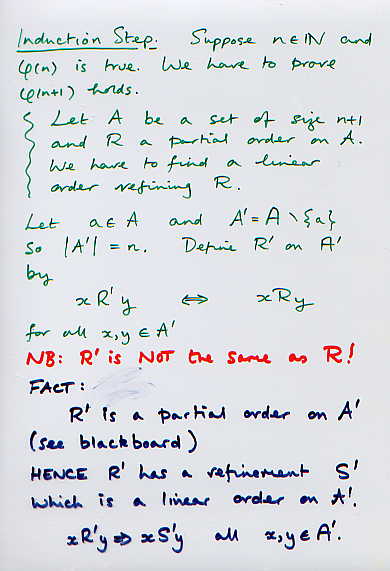 Induction Step. Suppose n ∈ ℕ and
φ(n) is true. We have to prove
φ(n+1) holds.
Let A be a set of size n+1
and R a partial order on A.
We have to find a linear
order refining R.
Let a ∈ A and A' = A \ {a}
so |A'| = n. Define R' on A'
by
x R' y ⇔ x R y
for all x, y ∈ A'
NB: R' is NOT the same as R!
FACT:
R' is a partial order on A'
(see blackboard)
HENCE R' has a refinement S'
which is a linear order on A'.
x R' y ⇒ x S' y all x, y ∈ A'.